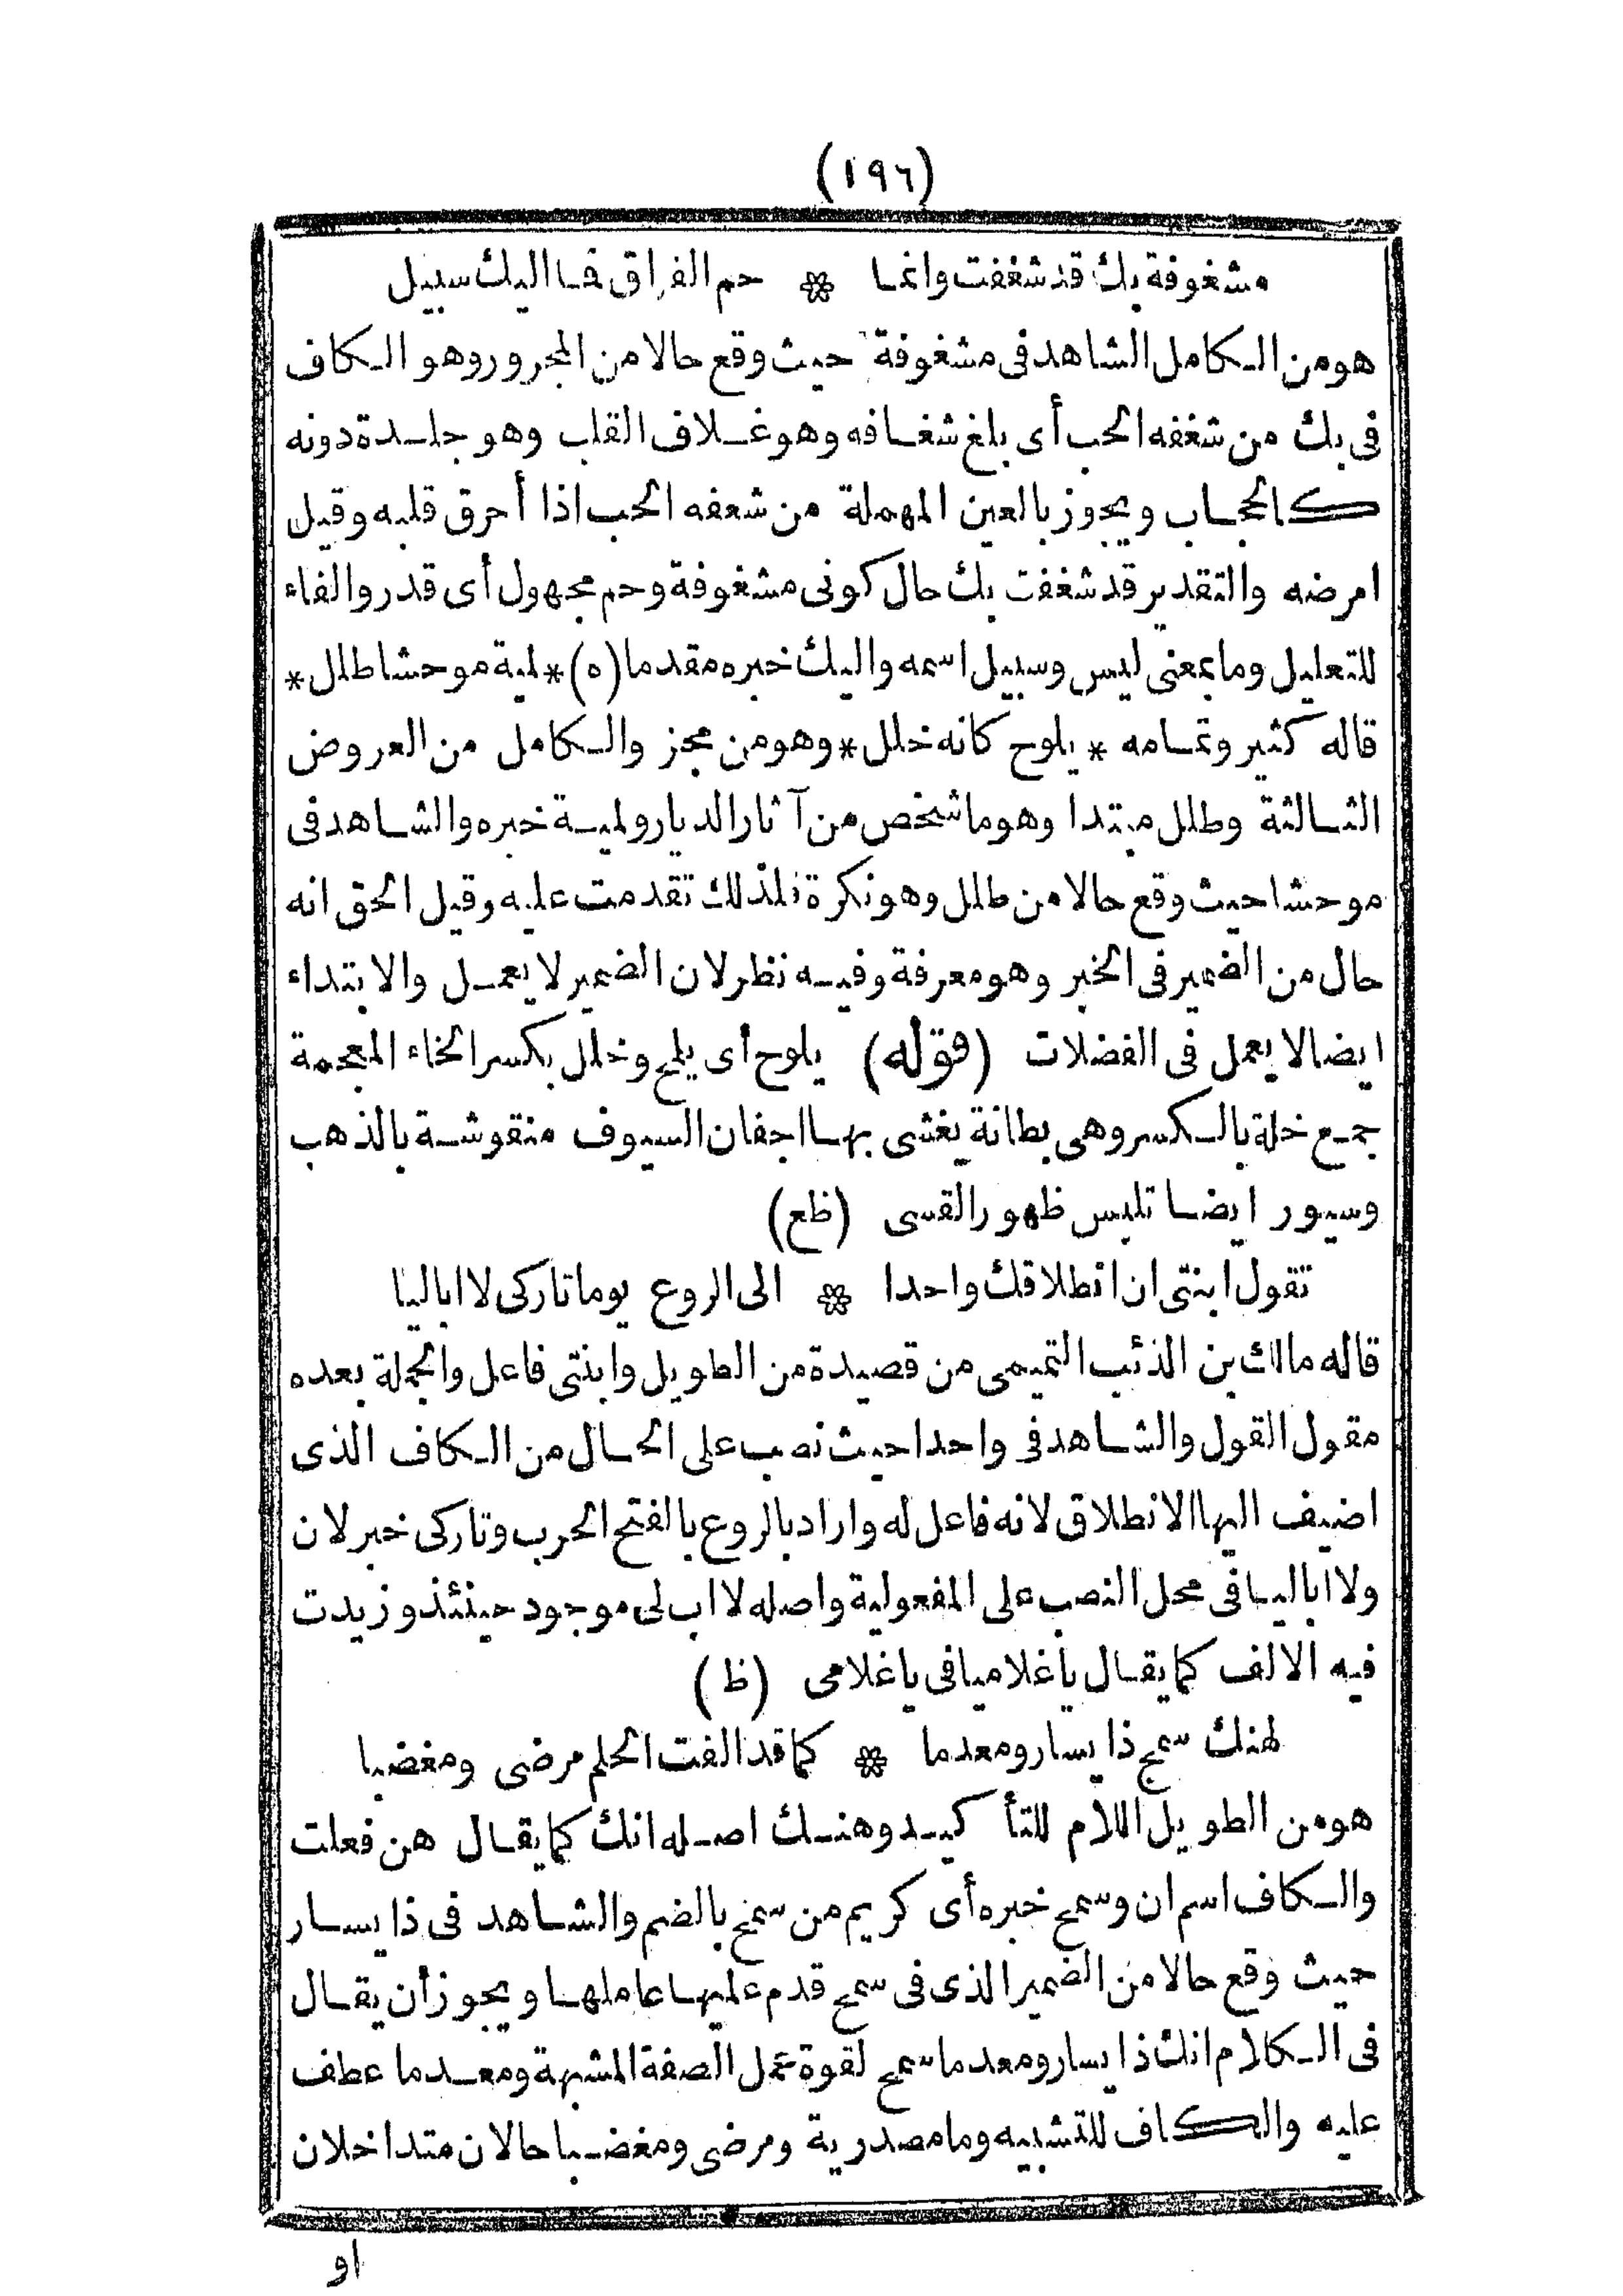 (١٩٦)
مشغوفة بك قد شغفت وانما ❊ حم الفراق فما اليك سبيل
هو من الكامل الشاهد فى مشغوفة حيث وقع حالا من المجرور وهو الكاف
فى بك من شغفه الحب أى بلغ شغافه وهو غلاف القلب وهو جلدة دونه
كالحجاب ويجوز بالعين المهملة من شعفه الحب اذا أحرق قلبه وقيل
امرضه والتقدير قد شغفت بك حال كونى مشغوفة وحم مجهول أى قدر والفاء
للتعليل وما بمعنى ليس وسبيل اسمه واليك خبره مقدما (ه) * لمية موحشا طلل *
قاله كثير وتمامه * يلوح كانه خلل * وهو من مجز والكامل من العروض
الثالثة وطلل مبتدا وهو ما شخص من آثار الديار ولمية خبره والشاهد فى
موحشا حيث وقع حالا من طلل وهو نكرة فلذلك تقدمت عليه وقيل الحق انه
حال من الضمير فى الخبر وهو معرفة وفيه نظر لان الضمير لا يعمل والابتداء
ايضا لا يعمل فى الفضلات (قوله) يلوح أى يلمع وخلل بكسر الخاء المعجمة
جمع خلة بالكسر وهى بطانة يغشى بها اجفان السيوف منقوشة بالذهب
وسيور ايضا تلبس ظهور القسى (ظع)
تقول ابنتى ان انطلاقك واحدا ❊ الى الروع يوما تاركى لا اباليا
قاله مالك بن الذئب التميمى من قصيدة من الطويل وابنتى فاعل والجملة بعده
مقول القول والشاهد فى واحدا حيث نصب على الحال من الكاف الذى
اضيف اليها الانطلاق لانه فاعل له واراد بالروع بالفتح الحرب وتاركى خبر لان
ولا اباليا فى محل النصب على المفعولية واصله لا اب لى موجود حينئذ وزيدت
فيه الالف كما يقال يا غلاميا فى يا غلامى (ظ)
لهنك سمح ذا يسار ومعدما ❊ كما قد الفت الحلم مرضى ومغضبا
هو من الطويل اللام للتأكيد وهنك اصله انك كما يقال هن فعلت
والكاف اسم ان وسمح خبره أى كريم من سمح بالضم والشاهد فى ذا يسار
حيث وقع حالا من الضمير الذى فى سمح قدم عليها عاملها ويجوز أن يقال
فى الكلام انك ذا يسار ومعدما سمح لقوة عمل الصفة المشبهة ومعدما عطف
عليه والكاف للتشبيه وما مصدرية ومرضى ومغضبا حالان متداخلان
او